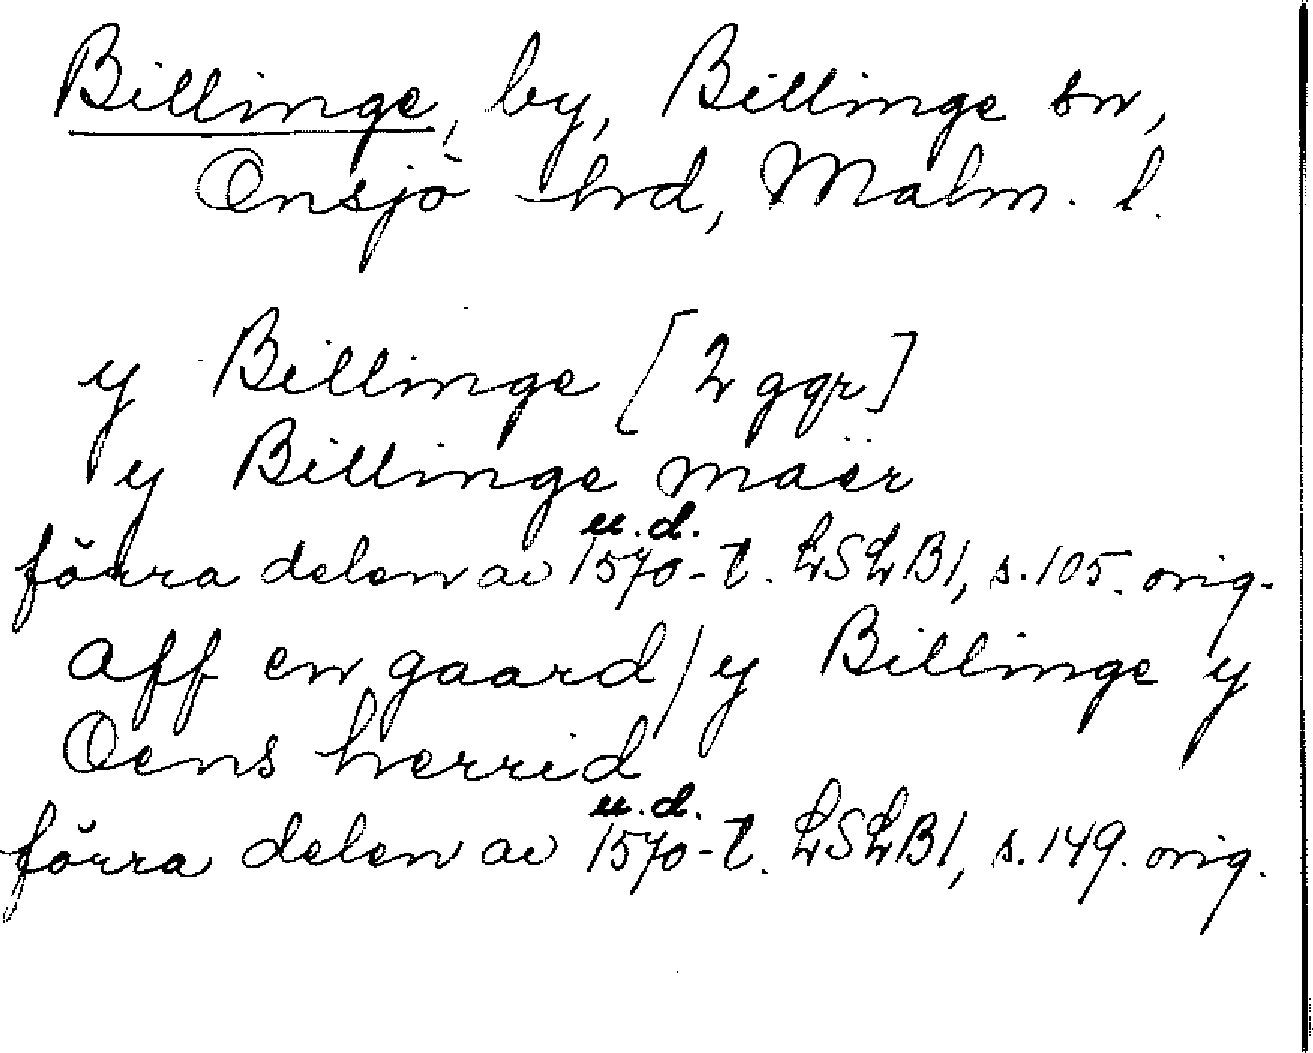 Billinge, by, Billinge sn,
Onsjö hd, Malm. l.
y Billinge [2 ggr]
y Billinge mäer
u.d.
förra delen av 1570-t. LSLB1, s.105. orig.
aff en gaard / y Billinge y
Oens herrid
u.d.
förra delen av 1570-t. LSLB1, s.149. orig.